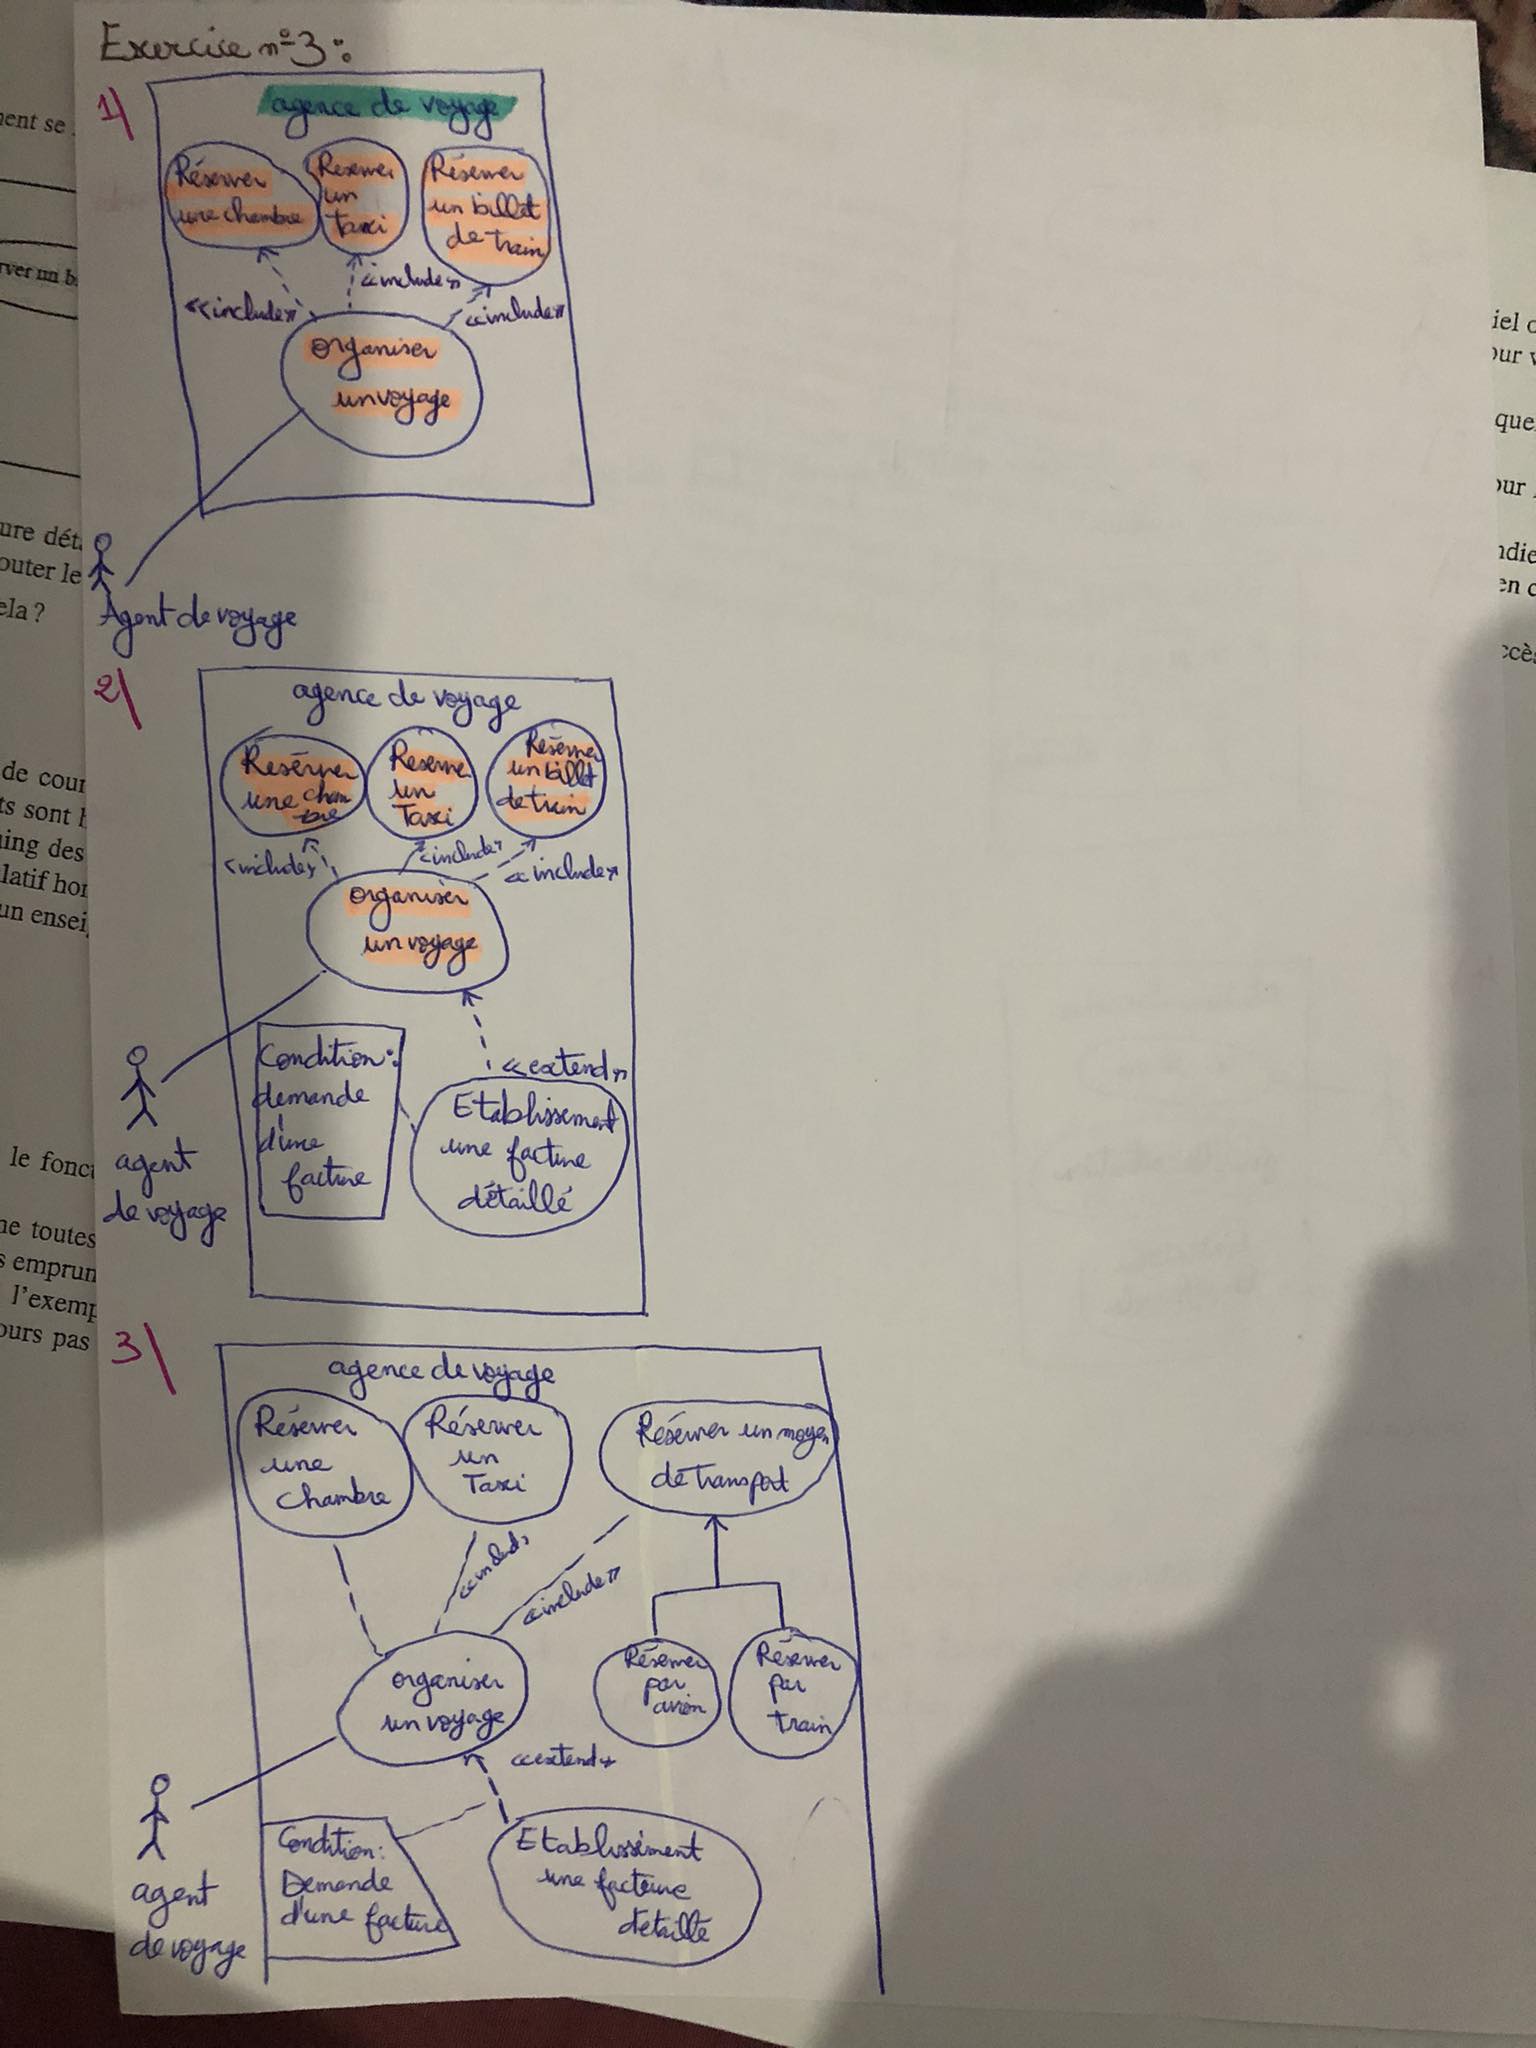 Exercice n°3:
1)
agence de voyage
Réserver
une chambre
Reserver
un
taxi
Réserver
un billet
de train
<<include>>
<<include>>
<<include>>
organiser
un voyage
Agent de voyage
2)
agence de voyage
Resérver
une cham
bre
Reserver
un
Taxi
Réserver
un billet
de train
<include>
<include>
<include>
organiser
un voyage
<<extend>>
Condition:
demande
d'une
facture
Etablissement
une facture
détaillé
agent
de voyage
3)
agence de voyage
Réserver
une
chambre
Réserver
un
Taxi
Réserver un moyen
de transport
<<include>>
<<include>>
organiser
un voyage
Réserver
par
avion
Réserver
par
train
<<extend>>
Condition:
Demande
d'une facture
Etablissement
une facture
détaillé
agent
de voyage
ment se
rver un b
ure dét
outer le
ela ?
de cour
ts sont
ing des
latif hor
un ensei
le fonct
ne toutes
s emprun
l'exemp
ours pas
iel
our v
que
our
ndie
en c
ccès